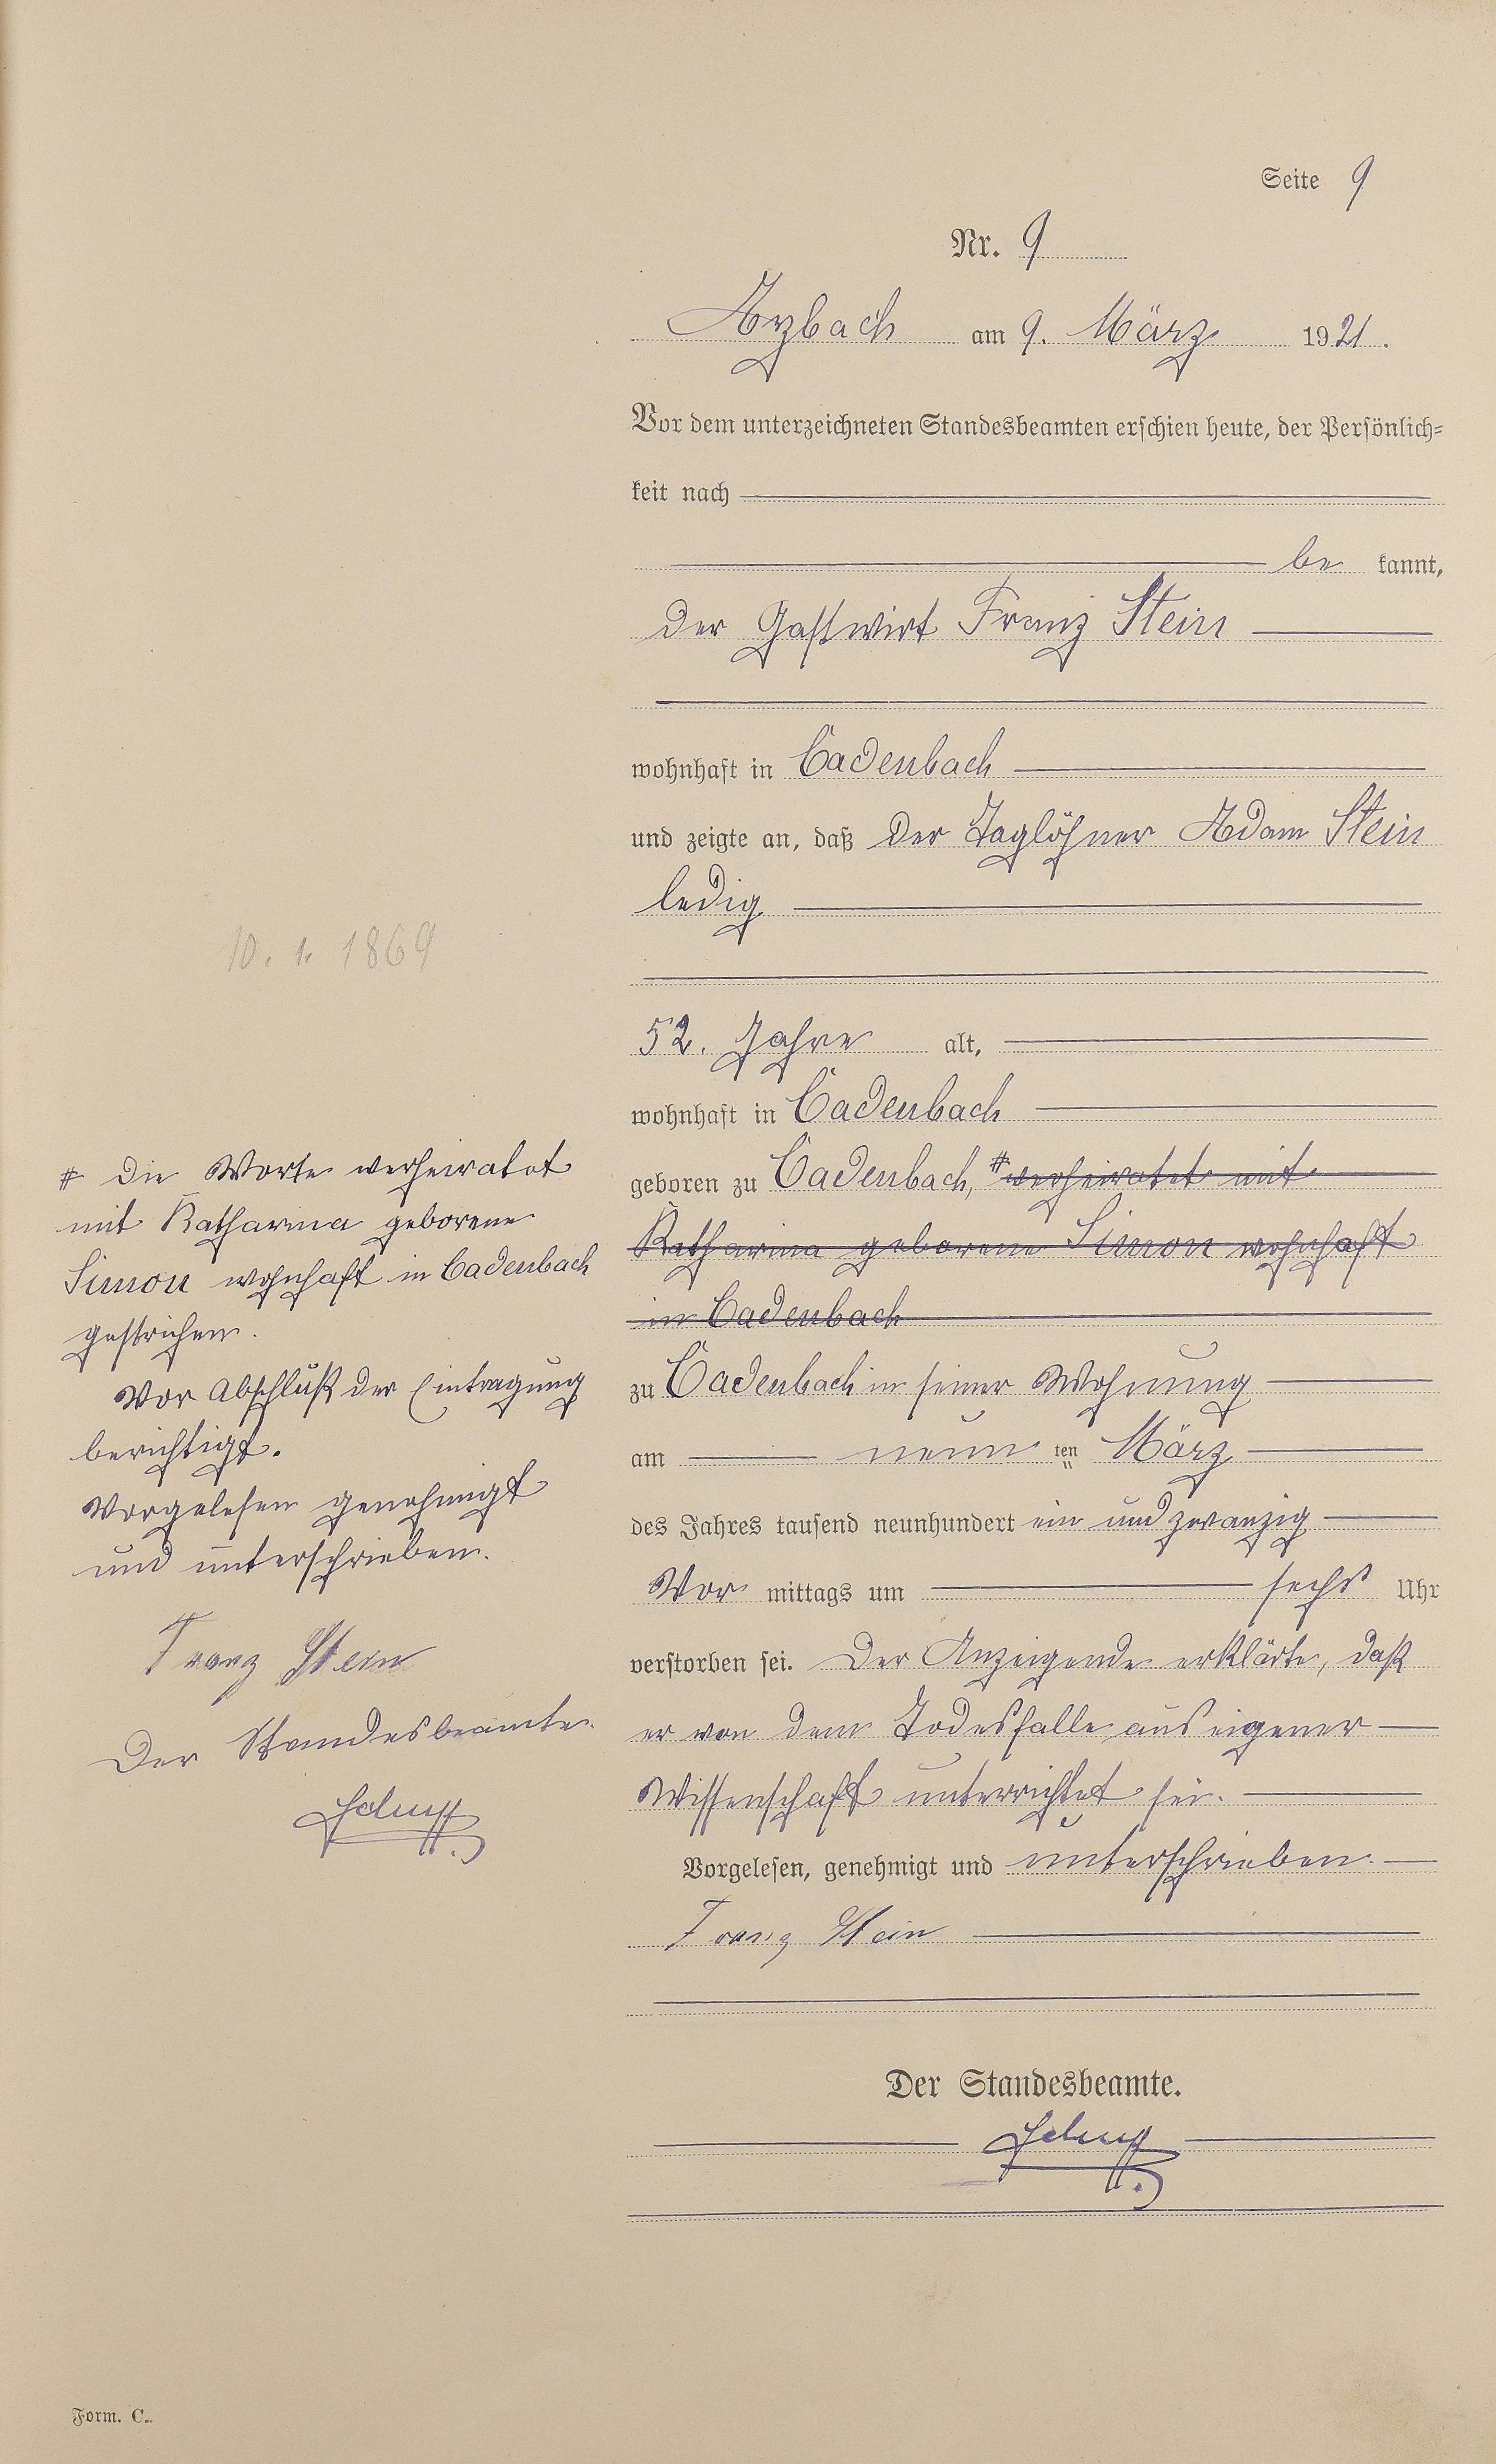 Seite 9
Nr. 9
Arzbach am 9. März 1921.
Vor dem unterzeichneten Standesbeamten erschien heute, der Persönlich-
keit nach
be kannt,
der Gastwirt Franz Stein
wohnhaft in Cadenbach
und zeigte an, daß der Taglöhner Adam Stein
ledig
10. 1. 1869
52. Jahre alt,
wohnhaft in Cadenbach
geboren zu Cadenbach, # verheiratet mit
Katharina geborene Simon wohnhaft
in Cadenbach
zu Cadenbach in seiner Wohnung
am neun ten März
des Jahres tausend neunhundert ein und zwanzig
Vor mittags um sechs Uhr
verstorben sei. Der Anzeigende erklärte, daß
er von dem Todesfalle aus eigener
Wissenschaft unterrichtet sei.
Vorgelesen, genehmigt und unterschrieben.
Franz Stein
Der Standesbeamte.
# Die Worte verheiratet
mit Katharina geborene
Simon wohnhaft in Cadenbach
gestrichen.
Vor Abschluß der Eintragung
berichtigt.
Vorgelesen genehmigt
und unterschrieben.
Franz Stein
Der Standesbeamte.
Form. C.